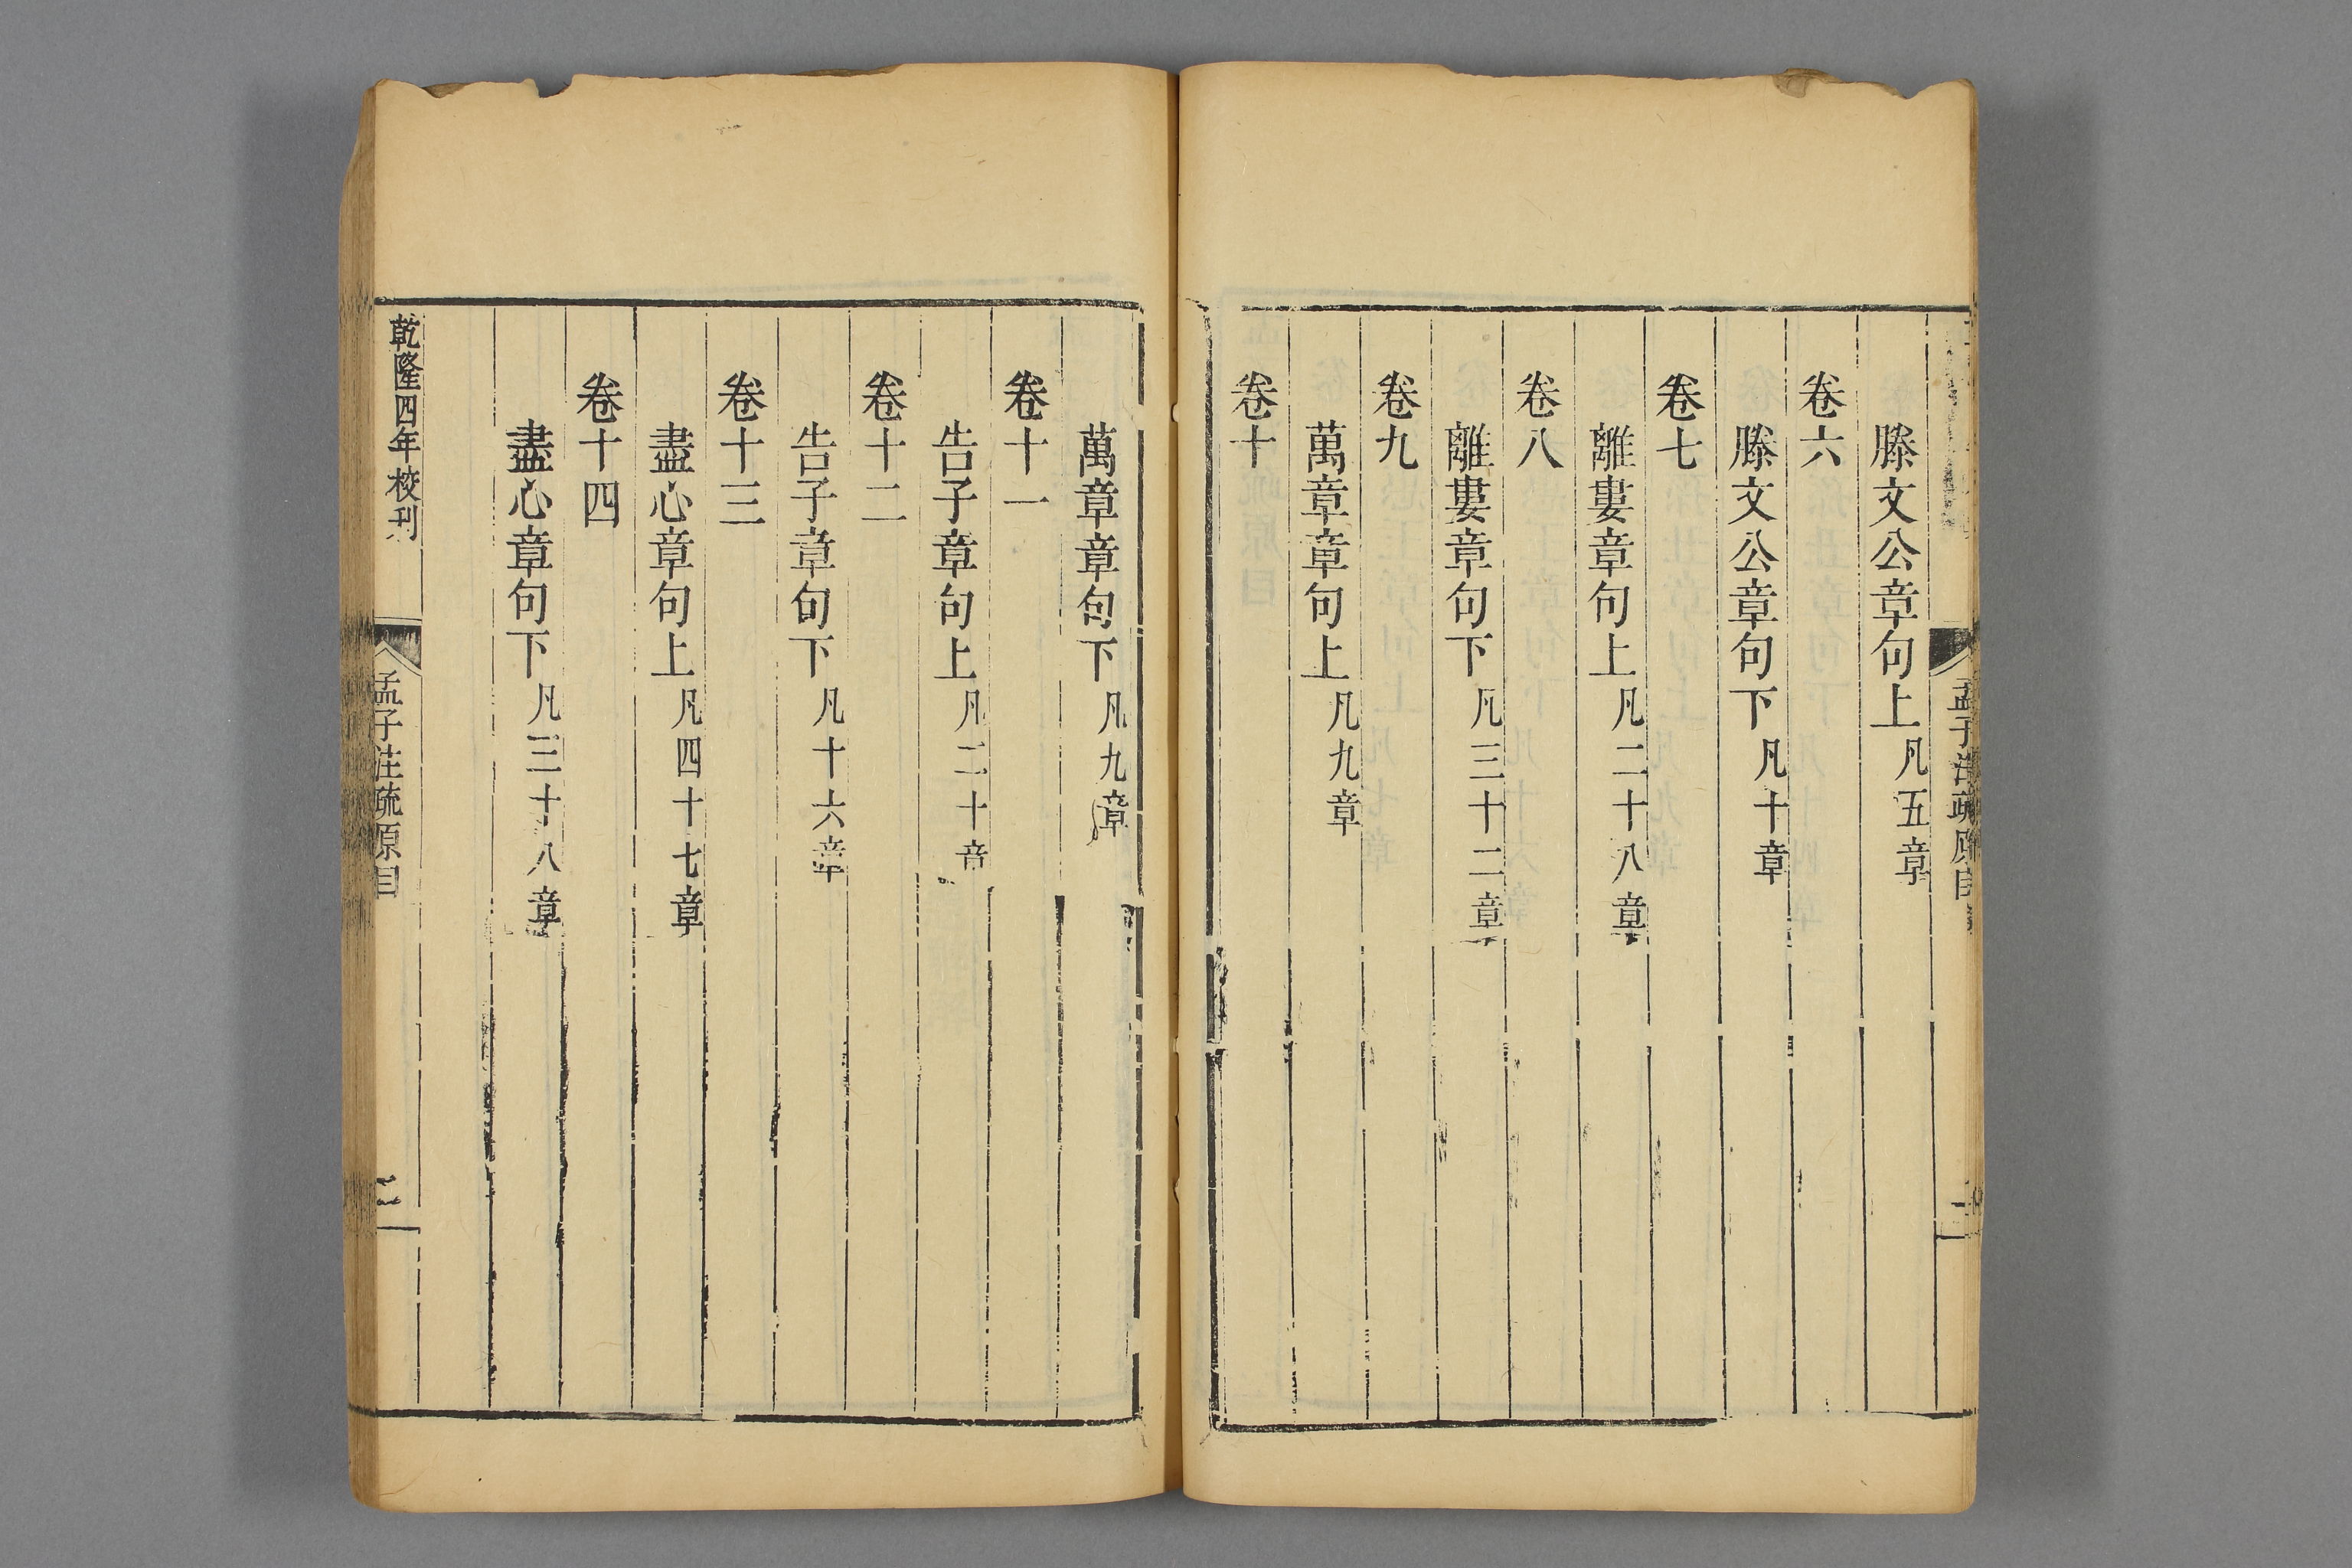 滕文公章句上凡五章
卷六
滕文公章句下凡十章
卷七
離婁章句上凡二十八章
卷八
離婁章句下凡三十二章
卷九
萬章章句上凡九章
卷十
萬章章句下凡九章
卷十一
告子章句上凡二十章
卷十二
告子章句下凡十六章
卷十三
盡心章句上凡四十七章
卷十四
盡心章句下凡三十八章
乾隆四年校刊
孟子注疏原目
二